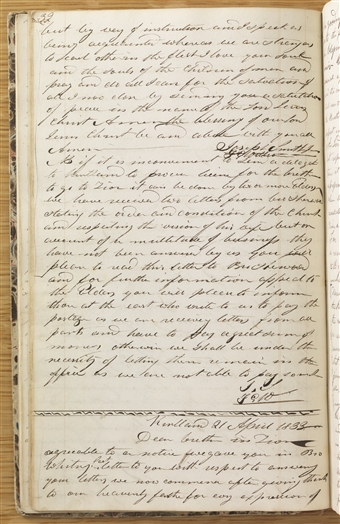 32
but by way of instruction and I speak as
being acquainted whereas we are strangers
to each other in the flesh I love your soul
and the souls of the Children of men and
pray and do all I can for the salvation of
all I now close by sending you a salutation
of peace in the name of the Lord Jesus
Christ Amen the blessing of our Lord
Jesus Christ be and abide with you all
Amen
Joseph Smith Jr
if it is inconvenient to send a delegate
to Kirtland to procure
to go to Zion it can be done by
we have received two letters from
stating the order and condition of the Church
and respecting the vision of his but on
account of a multitude of business they
have not been answered by us you will
please to read this letter to Bro
and for further information appeal to
the Elders you will please to inform
those at the East who write to us to pay the
postage as we are receiving letters from all
parts and have to pay a great sum of
money otherwise we shall be under the
necessity of letting them remain in the
office as we are not able to pay
J. S.
Kirtland 21 April 1833
Dear brethren in Zion
agreeable to a notice we gave you in Bro
letter to you with respect to answering
your letters we now commence after giving thanks
to our heavenly father for every expression of